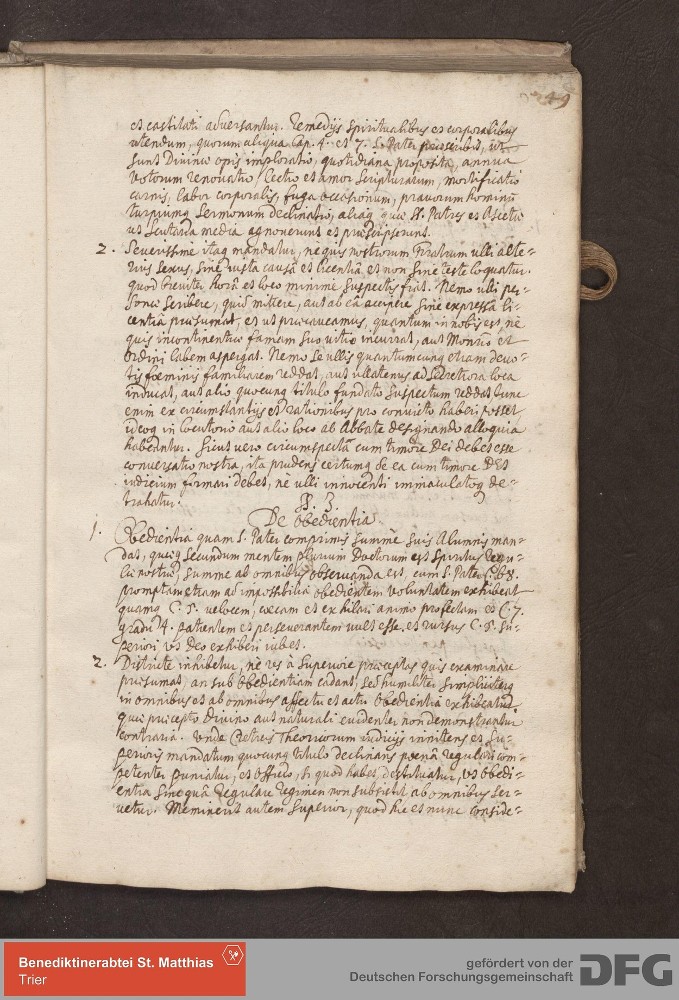 49
et castitati adversantur. Remedijs spiritualibus et corporalibus
utendum, quorum aliqua Cap. 4. et 7. S. Pater præscribit, ut
sunt Divinæ opis imploratio, quotidiana proposita, annua
votorum renovatio, Lectio et amor Scripturarum, mortificatio
carnis, labor corporalis, fuga occasionum, pravorum hominū
turpiumq̄ Sermonum declinatio, aliaq̄ quæ SS. Patres et Ascetæ
ut salutaria media agnoverunt et præscripserunt.
2. Severissime itaq̄ mandatur, nè quis nostrorum Fratrum ulli alte=
rius sexus, sine justa causâ et licentiâ et non sine teste loquatur.
quod breviter horâ et loco minime suspectis fiat. Nemo ulli per=
sonæ scribere, quid mittere, aut ab eâ accipere sine expressâ li=
centia præsumat, et ut præcaveamus, quantum in nobis est, nè
quis incontinentiæ famam suo vitio incurrat, aut Monrio et
Ordini labem aspergat. Nemo se ullis quantumcunq̄ etiam devo=
tis fœminis familiarem reddat, aut ullatenus ad secretiora loca
inducat, aut alio quocunq̄ titulo fundato suspectum reddat, tunc
enim ex circumstantijs et rationibus pro convicto haberi posset,
ideoq̄ in locutorio aut alio loco ab Abbate designando alloquia
habeantur. Sicut vero circumspecta cum timore Dei debet esse
conversatio nostra, ita prudens certumq̄ de ea cum timore DEI
iudicium formari debet, nè ulli innocenti immaculatoq̄ de=
trahatur.
§. 3.
De Obedientia
1. Obedientia quam S. Pater comprimis summe suis Alumnis man=
dat, quæq̄ secundum mentem plurium Doctorum est spiritus Regu=
læ nostræ, summe ab omnibus observanda est, cum S. Pater C. 68.
promptam etiam ad impossibilia obedientem voluntatem exhibeat
quamq̄ C. 5. velocem, cæcam et ex hilari animo profectam et C. 7.
gradu 4. patientem et perseverantem vult esse, et rursus C. 5. Su=
periori ut Deo exhiberi iubet.
2. Districte inhibetur, nè ut à Superiore præceptas quis examinare
præsumat, an sub Obedientiam cadant, sed humiliter simpliciterq̄
in omnibus et ab omnibus affectu et actu Obedientia exhibeatur
quæ præcepto divino aut naturali evidenter non demonstrantur
contraria. Unde Theoricorum iudicijs innitens et Su=
perioris mandatum quocunq̄ titulo declinans pœnâ regulari com=
petenter puniatur, et officio, si quod habet, destituatur, ut obedi=
entia sine quâ regulare regimen non subsistit ab omnibus ser=
vetur. Meminerit autem Superior, quod hic et nunc conside=
Benediktinerabtei St. Matthias
Trier
gefördert von der
Deutschen Forschungsgemeinschaft
DFG